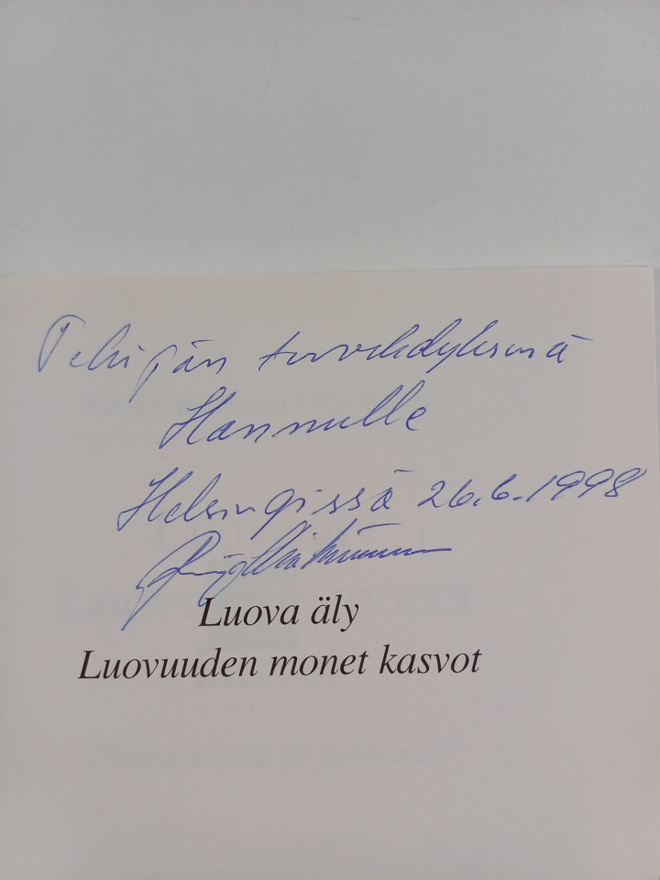 Tekijän tervehdyksenä
Hannulle
Helsingissä 26.6.1998
Luova äly
Luovuuden monet kasvot